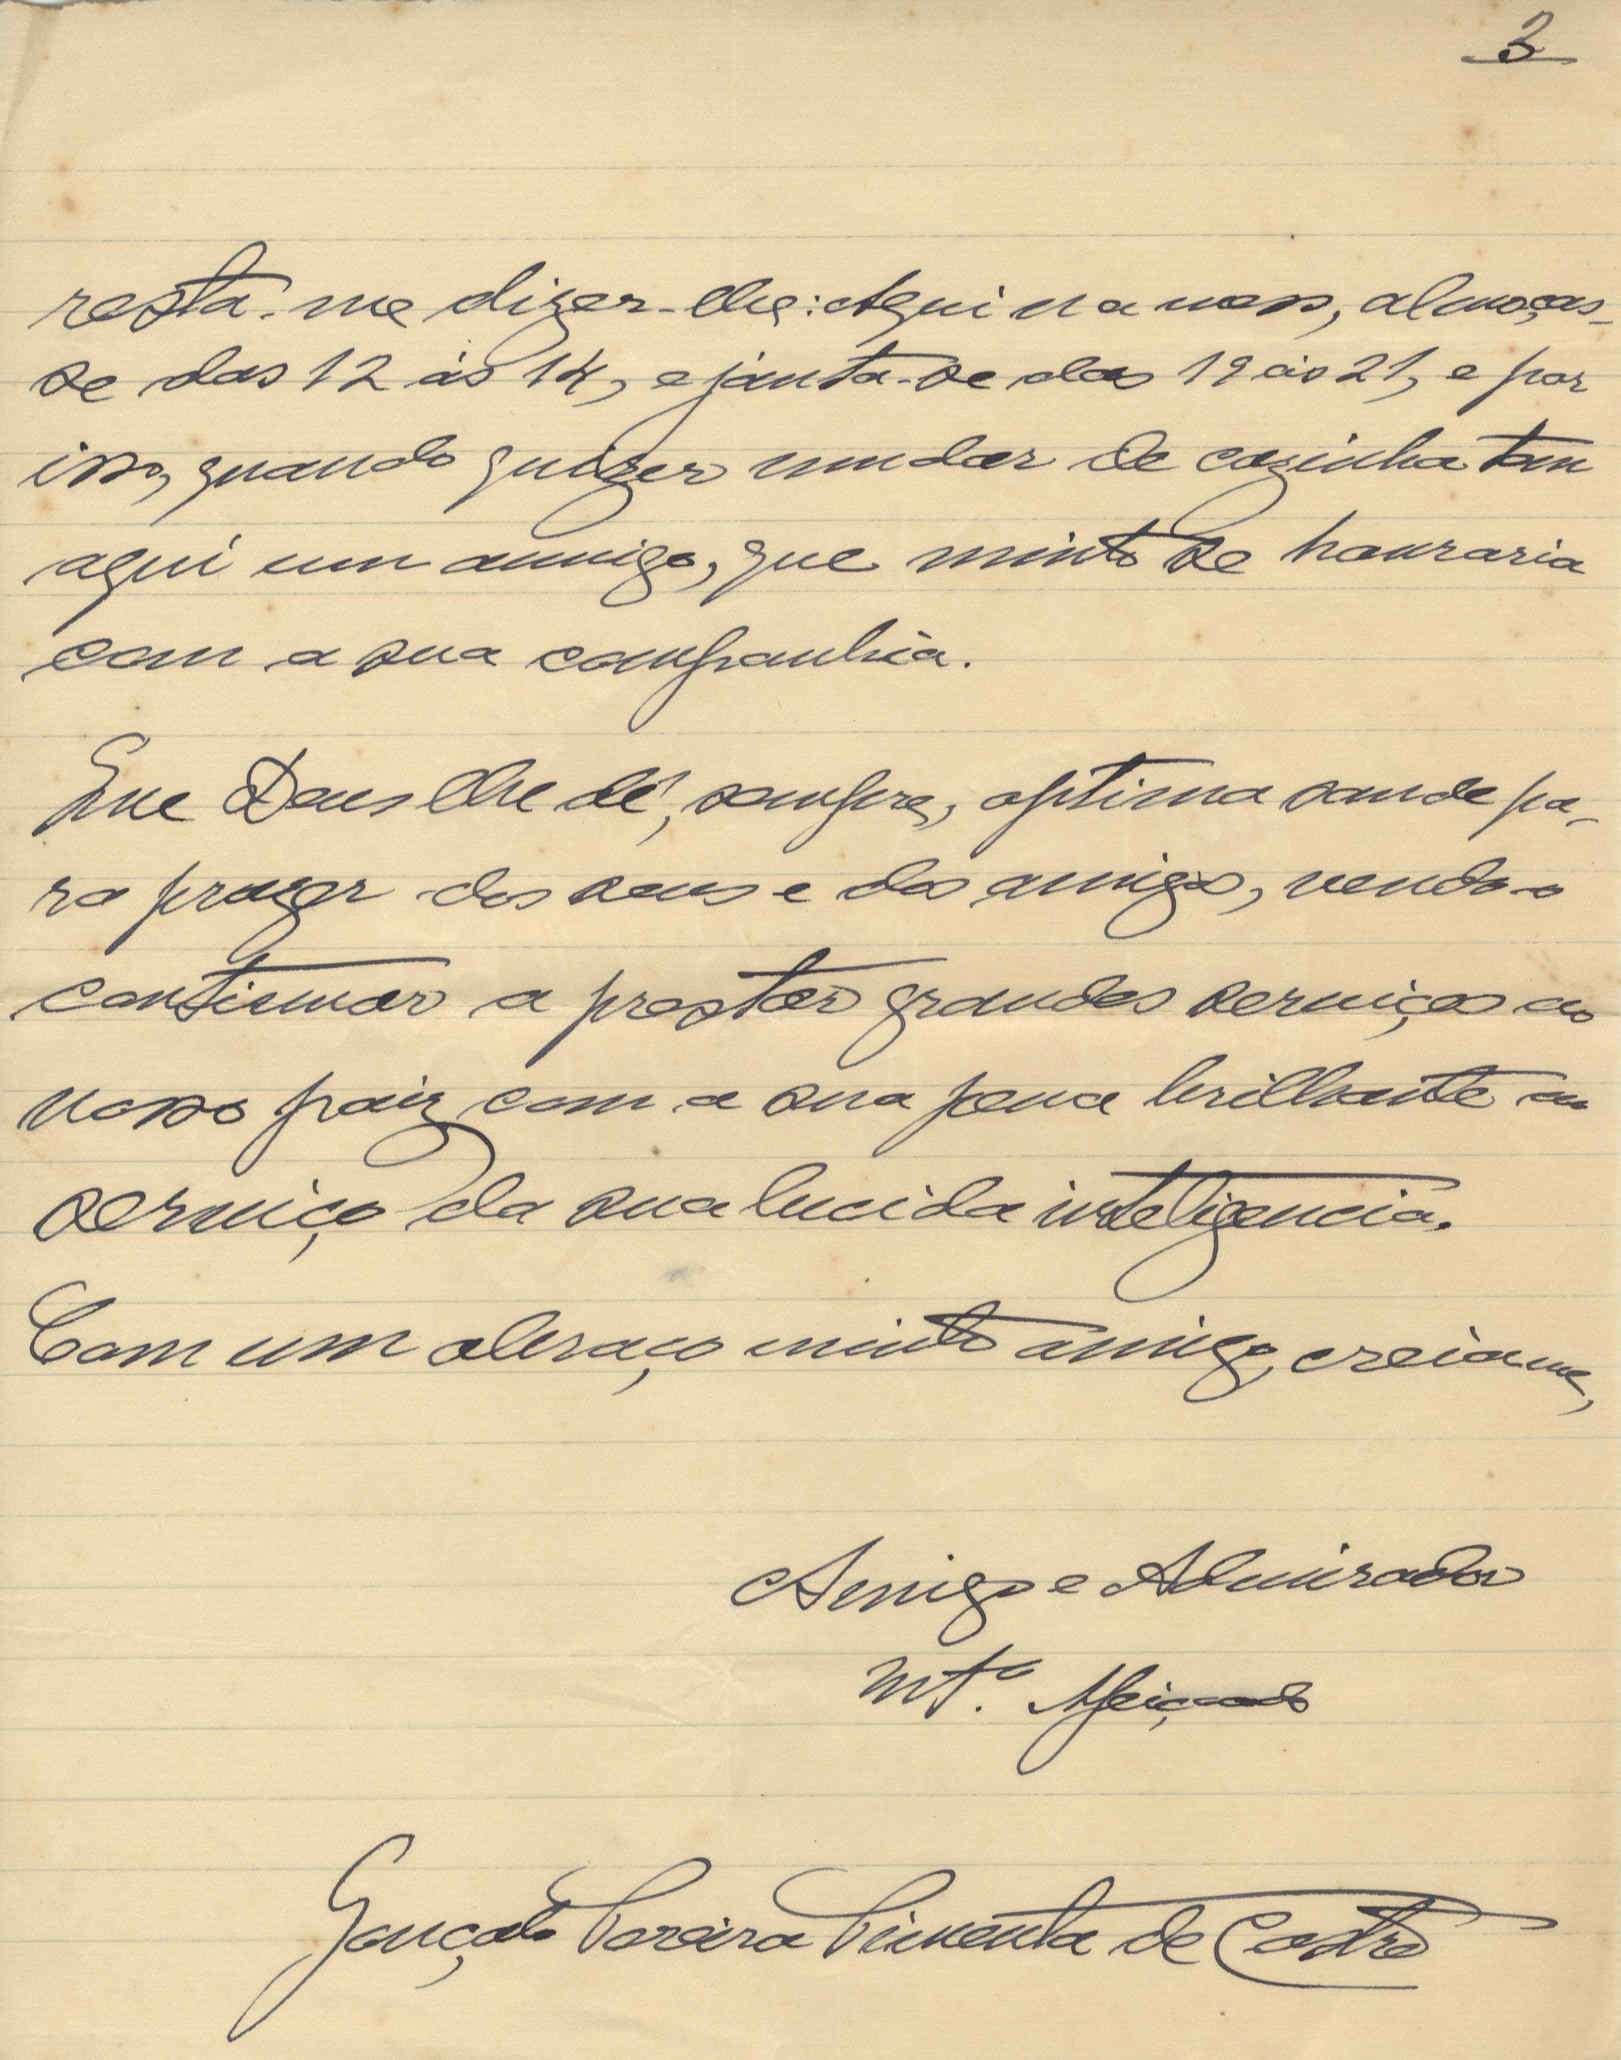 3
resta-me dizer-lhe: Aqui na mess, almoças-
se das 12 ás 14, e janta-se das 19 ás 21, e por
isso, quando quizer mudar de cozinha tem
aqui um amigo, que muito se honraria
com a sua companhia.
Que Deus lhe dê, sempre, optima saude pa-
ra prazer dos seus e dos amigos, vendo-o
continuar a prestar grandes serviços ao
nosso paiz com a sua pena brilhante ao
serviço da sua lucida inteligencia.
Com um abraço muito amigo, creia-me,
Amigo e Admirador
Mtº. Afeiçoado
Gonçalo Pereira Pimenta de Castro